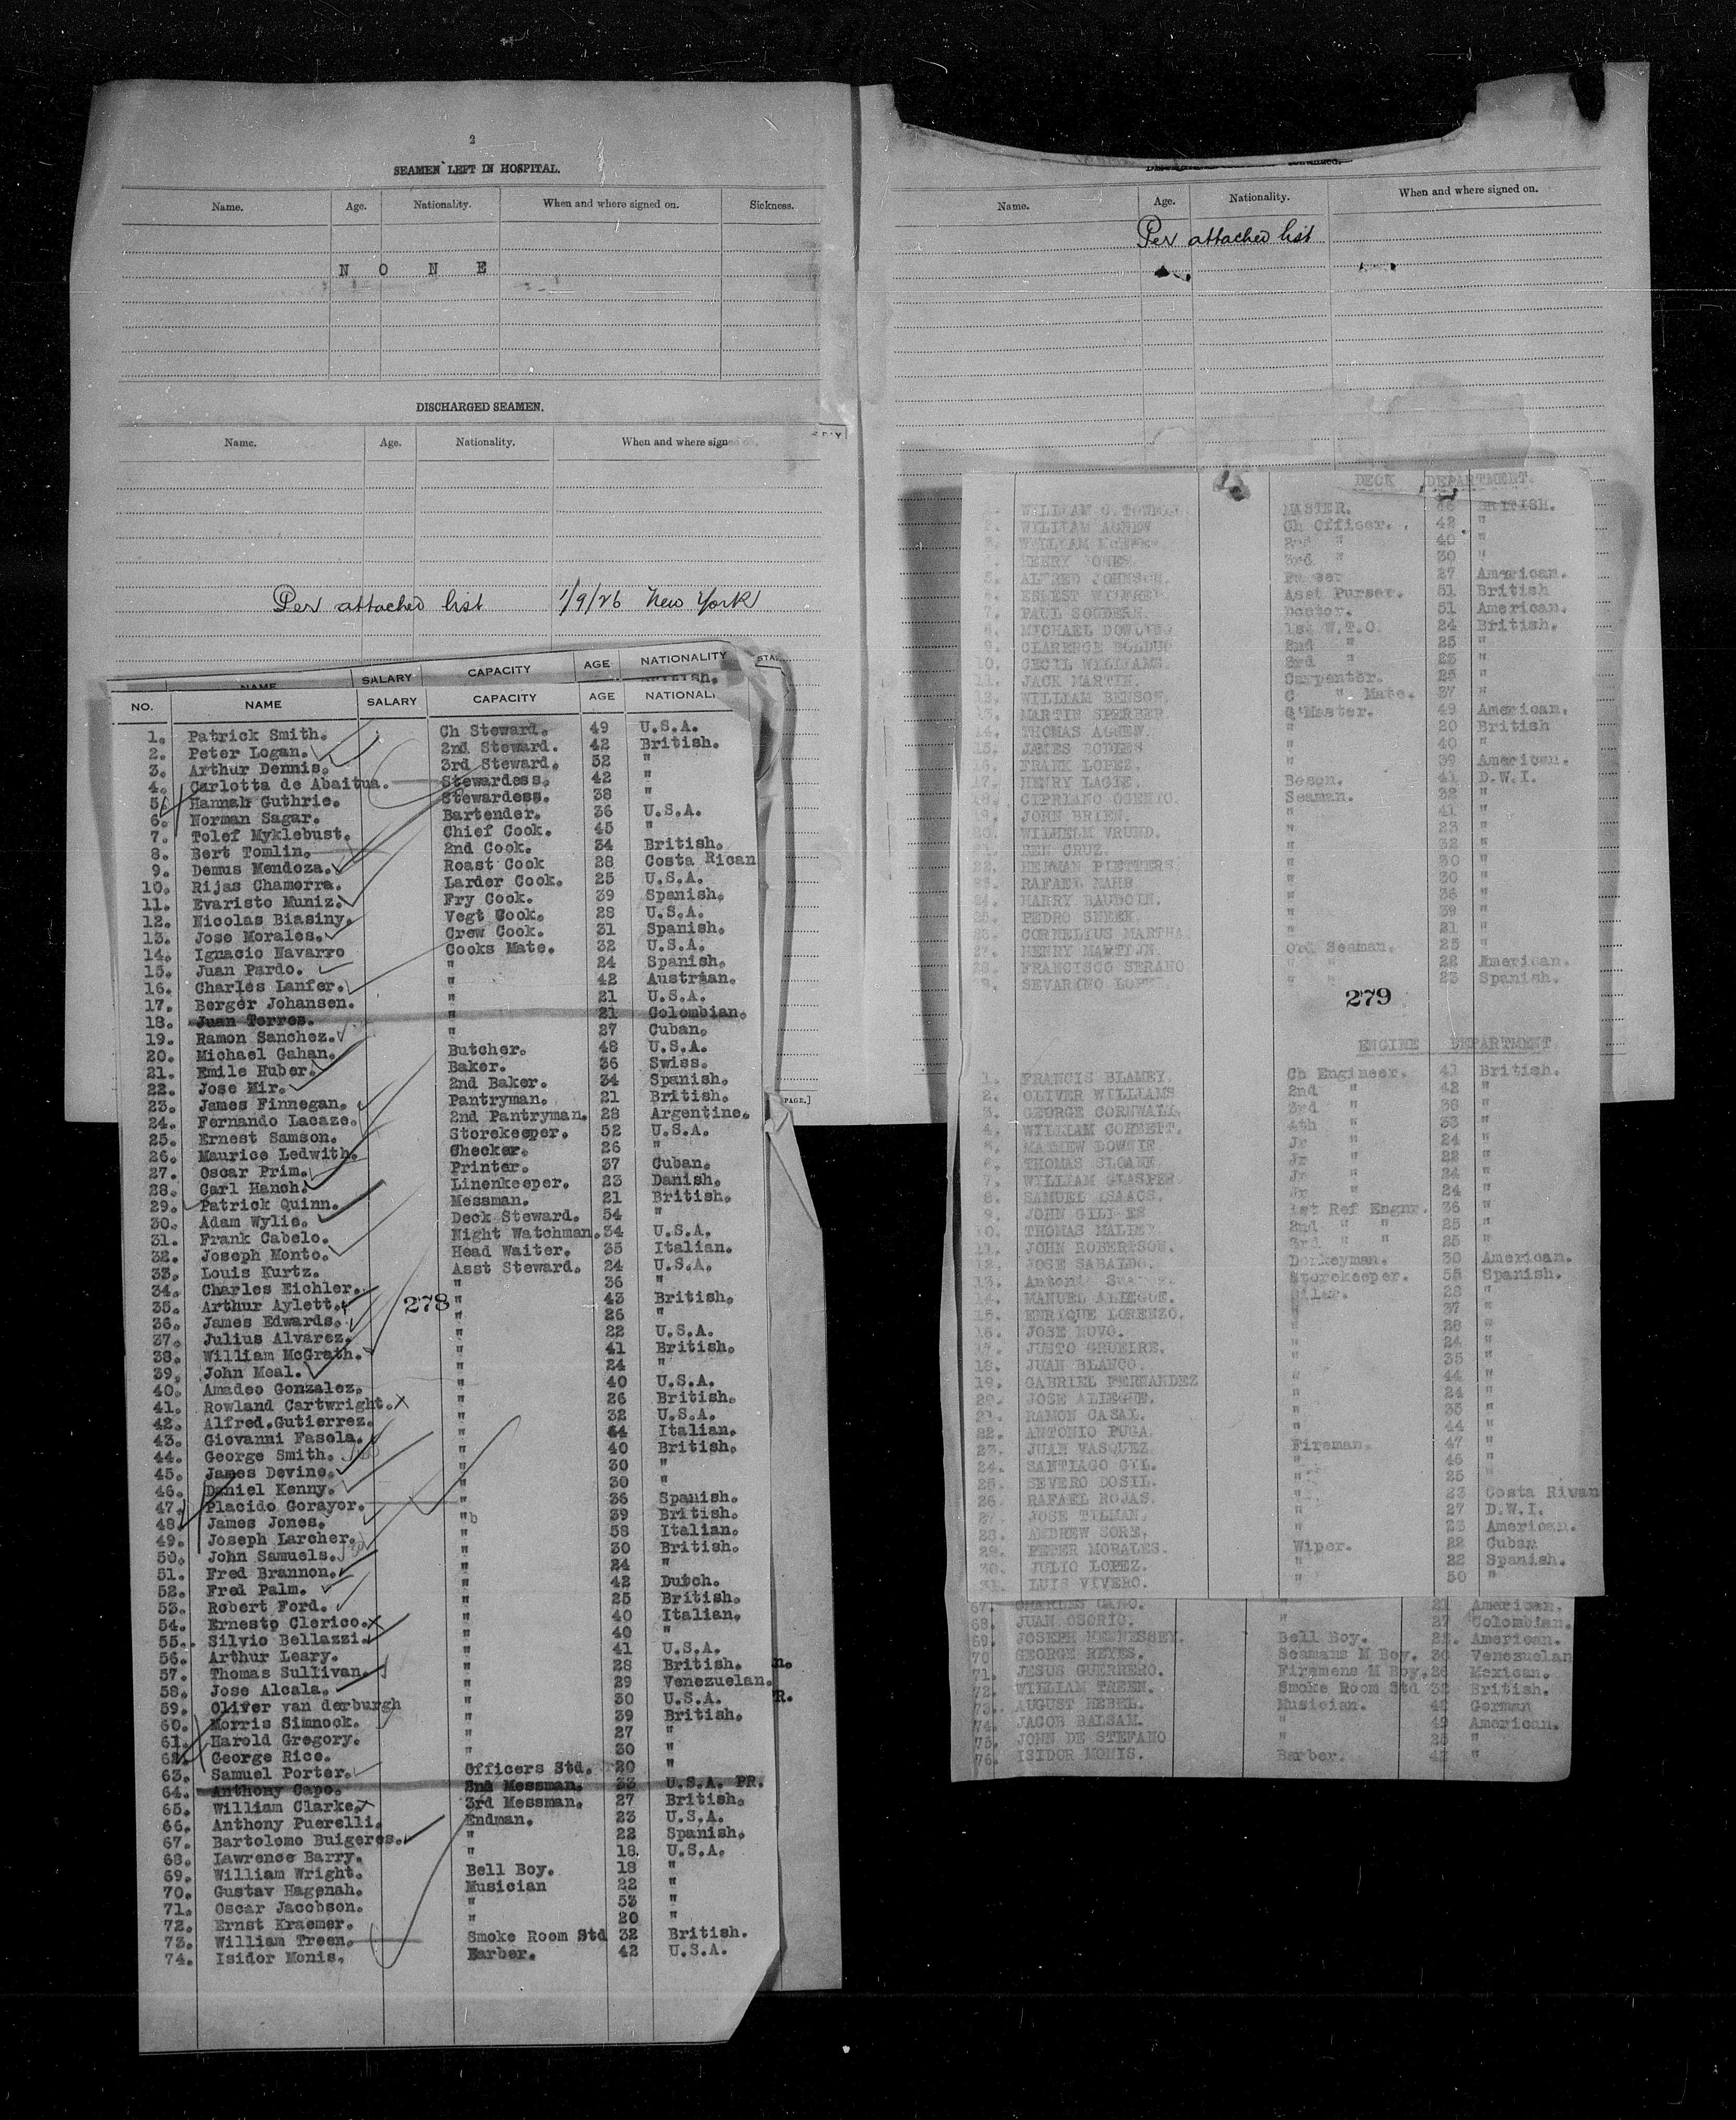 2
SEAMEN LEFT IN HOSPITAL.
Name. Age. Nationality. When and where signed on. Sickness.
N O N E
DISCHARGED SEAMEN.
Name. Age. Nationality. When and where sign
Per attached list 1/9/26 New York
NAME SALARY CAPACITY AGE NATIONALITY
NO. NAME SALARY CAPACITY AGE NATIONALI
1. Patrick Smith. Ch Steward. 49 U.S.A.
2. Peter Logan. 2nd Steward. 42 British.
3. Arthur Dennis. 3rd Steward. 52 "
4. Carlotta de Abaitua. Stewardess. 42 "
5. Hannah Guthrie. Stewardess. 38 "
6. Norman Sagar. Bartender. 36 U.S.A.
7. Tolef Myklebust. Chief Cook. 45 "
8. Bert Tomlin. 2nd Cook. 34 British.
9. Demus Mendoza. Roast Cook 28 Costa Rican
10. Rijas Chamorra. Larder Cook. 25 U.S.A.
11. Evaristo Muniz. Fry Cook. 39 Spanish.
12. Nicolas Biasiny. Vegt Cook. 28 U.S.A.
13. Jose Morales. Crew Cook. 31 Spanish.
14. Ignacio Navarro Cooks Mate. 32 U.S.A.
15. Juan Pardo. " 24 Spanish.
16. Charles Lanfer. " 42 Austrian.
17. Berger Johansen. " 21 U.S.A.
18. Juan Torres. " 21 Colombian.
19. Ramon Sanchez. " 27 Cuban.
20. Michael Gahan. Butcher. 48 U.S.A.
21. Emile Huber. Baker. 36 Swiss.
22. Jose Mir. 2nd Baker. 34 Spanish.
23. James Finnegan. Pantryman. 21 British.
24. Fernando Lacaze. 2nd Pantryman. 28 Argentine.
25. Ernest Samson. Storekeeper. 52 U.S.A.
26. Maurice Ledwith. Checker. 26 "
27. Oscar Prim. Printer. 37 Cuban.
28. Carl Hanch. Linenkeeper. 23 Danish.
29. Patrick Quinn. Messman. 21 British.
30. Adam Wylie. Deck Steward. 54 "
31. Frank Cabelo. Night Watchman. 34 U.S.A.
32. Joseph Monto. Head Waiter. 35 Italian.
33. Louis Kurtz. Asst Steward. 24 U.S.A.
34. Charles Eichler. " 36 "
35. Arthur Aylett. " 43 British.
278
36. James Edwards. " 26 "
37. Julius Alvarez. " 22 U.S.A.
38. William McGrath. " 41 British.
39. John Meal. " 24 "
40. Amadeo Gonzalez. " 40 U.S.A.
41. Rowland Cartwright. " 26 British.
42. Alfred.Gutierrez. " 32 U.S.A.
43. Giovanni Fasola. " 44 Italian.
44. George Smith. " 40 British.
45. James Devine. " 30 "
46. Daniel Kenny. " 30 "
47. Placido Gorayor. " 36 Spanish.
48. James Jones. " 39 British.
49. Joseph Larcher. " 58 Italian.
50. John Samuels. " 30 British.
51. Fred Brannon. " 24 "
52. Fred Palm. " 42 Dutch.
53. Robert Ford. " 25 British.
54. Ernesto Clerico. " 40 Italian.
55. Silvio Bellazzi. " 40 "
56. Arthur Leary. " 41 U.S.A.
57. Thomas Sullivan. " 28 British.
58. Jose Alcala. " 29 Venezuelan.
59. Oliver van derburgh " 30 U.S.A.
60. Morris Simnock. " 39 British.
61. Harold Gregory. " 27 "
62. George Rice. " 30 "
63. Samuel Porter. Officers Std. 20 "
64. Anthony Capo. 2nd Messman. 33 U.S.A. PR.
65. William Clarke. 3rd Messman. 27 British.
66. Anthony Puerelli. Endman. 23 U.S.A.
67. Bartolomo Buigeres. " 22 Spanish.
68. Lawrence Barry. " 18 U.S.A.
69. William Wright. Bell Boy. 18 "
70. Gustav Hagenah. Musician 22 "
71. Oscar Jacobson. " 53 "
72. Ernst Kraemer. " 20 "
73. William Treen. Smoke Room Std 32 British.
74. Isidor Monis. Barber. 42 U.S.A.
Name. Age. Nationality. When and where signed on.
Per attached list
DECK DEPARTMENT.
WILLIAM C. MASTER. 46 BRITISH.
2. WILLIAM AGNEW Ch Officer. 42 "
WILLIAM 2nd " 40 "
HENRY JONES. 3rd " 30 "
5. ALFRED JOHNSON. 27 American.
6. ERNEST Asst Purser. 51 British
7. PAUL SOUDERN. Doctor. 51 American.
8. MICHAEL DOWLING 1st W.T.O. 24 British.
9. CLARENCE BOLDUC 2nd " 25 "
10. CECIL WILLIAMS. 3rd " 23 "
11. JACK MARTIN. Carpenter. 25 "
12. WILLIAM BENSON. C " Mate. 37 "
13. MARTIN SPERBER Q'Master. 49 American.
14. THOMAS AGNEW. " 20 British
15. JAMES " 40 "
16. FRANK LOPEZ. " 39 American.
17. HENRY LAGIE. Bosun. 41 D.W.I.
18. CIPRIANO OSENIO. Seaman. 32 "
19. JOHN BRIEN. " 41 "
20. WILHELM VRUND. " 23 "
21. BEN CRUZ. " 32 "
22. HERMAN PIETTERS. " 30 "
23. RAFAEL " 30 "
24. HARRY BAUDOIN. " 36 "
25. PEDRO SNEEK. " 39 "
26. CORNELIUS MARTHA. " 21 "
27. HENRY MARTIJN. Ord Seaman. 25 "
28. FRANCISCO SERANO " " 22 American.
SEVARINO " " 23 Spanish.
279
ENGINE DEPARTMENT
1. FRANCIS BLAMEY. Ch Engineer. 41 British.
2. OLIVER WILLIAMS 2nd " 42 "
3. GEORGE CORNWALL. 3rd " 36 "
4. WILLIAM CORBETT. 4th " 38 "
5. MATHEW DOWNIE. Jr " 24 "
6. THOMAS SLOANE Jr " 22 "
7. WILLIAM GLASPER. Jr " 24 "
8. SAMUEL ISAACS. Jr " 24 "
9. JOHN 1st Ref Engnr. 36 "
10. THOMAS 2nd " " 25 "
11. JOHN ROBERTSON. 3rd " " 25 "
12. JOSE SABALDO. Donkeyman. 30 American.
13. Antoni Storekeeper. 55 Spanish.
14. MANUEL ALIEGUE. Oiler. 28 "
15. ENRIQUE LORENZO. " 37 "
16. JOSE NOVO. " 28 "
17. JUSTO GRUEIRE. " 24 "
18. JUAN BLANCO. " 35 "
19. GABRIEL FERNANDEZ " 44 "
20. JOSE ALIEGUE. " 24 "
21. RAMON CASAL. " 35 "
22. ANTONIO PUGA. " 44 "
23. JUAN VASQUEZ. Fireman. 47 "
24. SANTIAGO GIL. " 46 "
25. SEVERO DOSIL. " 25 "
26. RAFAEL ROJAS. " 23 Costa Rican
27. JOSE TILMAN. " 27 D.W.I.
28. ANDREW SORE. " 23 American.
29. PETER MORALES. Wiper. 22 Cuban
30. JULIO LOPEZ. " 22 Spanish.
31. LUIS VIVERO. " 50 "
67. CHARLES CANO. 21 American.
68. JUAN OSORIO. " 27 Colombian.
69. JOSEPH HENNESSEY. Bell Boy. 22. American.
70 GEORGE REYES. Seamans M Boy. 30 Venezuelan
71. JESUS GUERRERO. Firemens M Boy. 26 Mexican.
72. WILLIAM TREEN. Smoke Room Std 32 British.
73. AUGUST HEBEL. Musician. 42 German
74. JACOB BALSAM. " 49 American.
75. JOHN DE STEFANO " 25 "
76. ISIDOR MONIS. Barber. 42 "